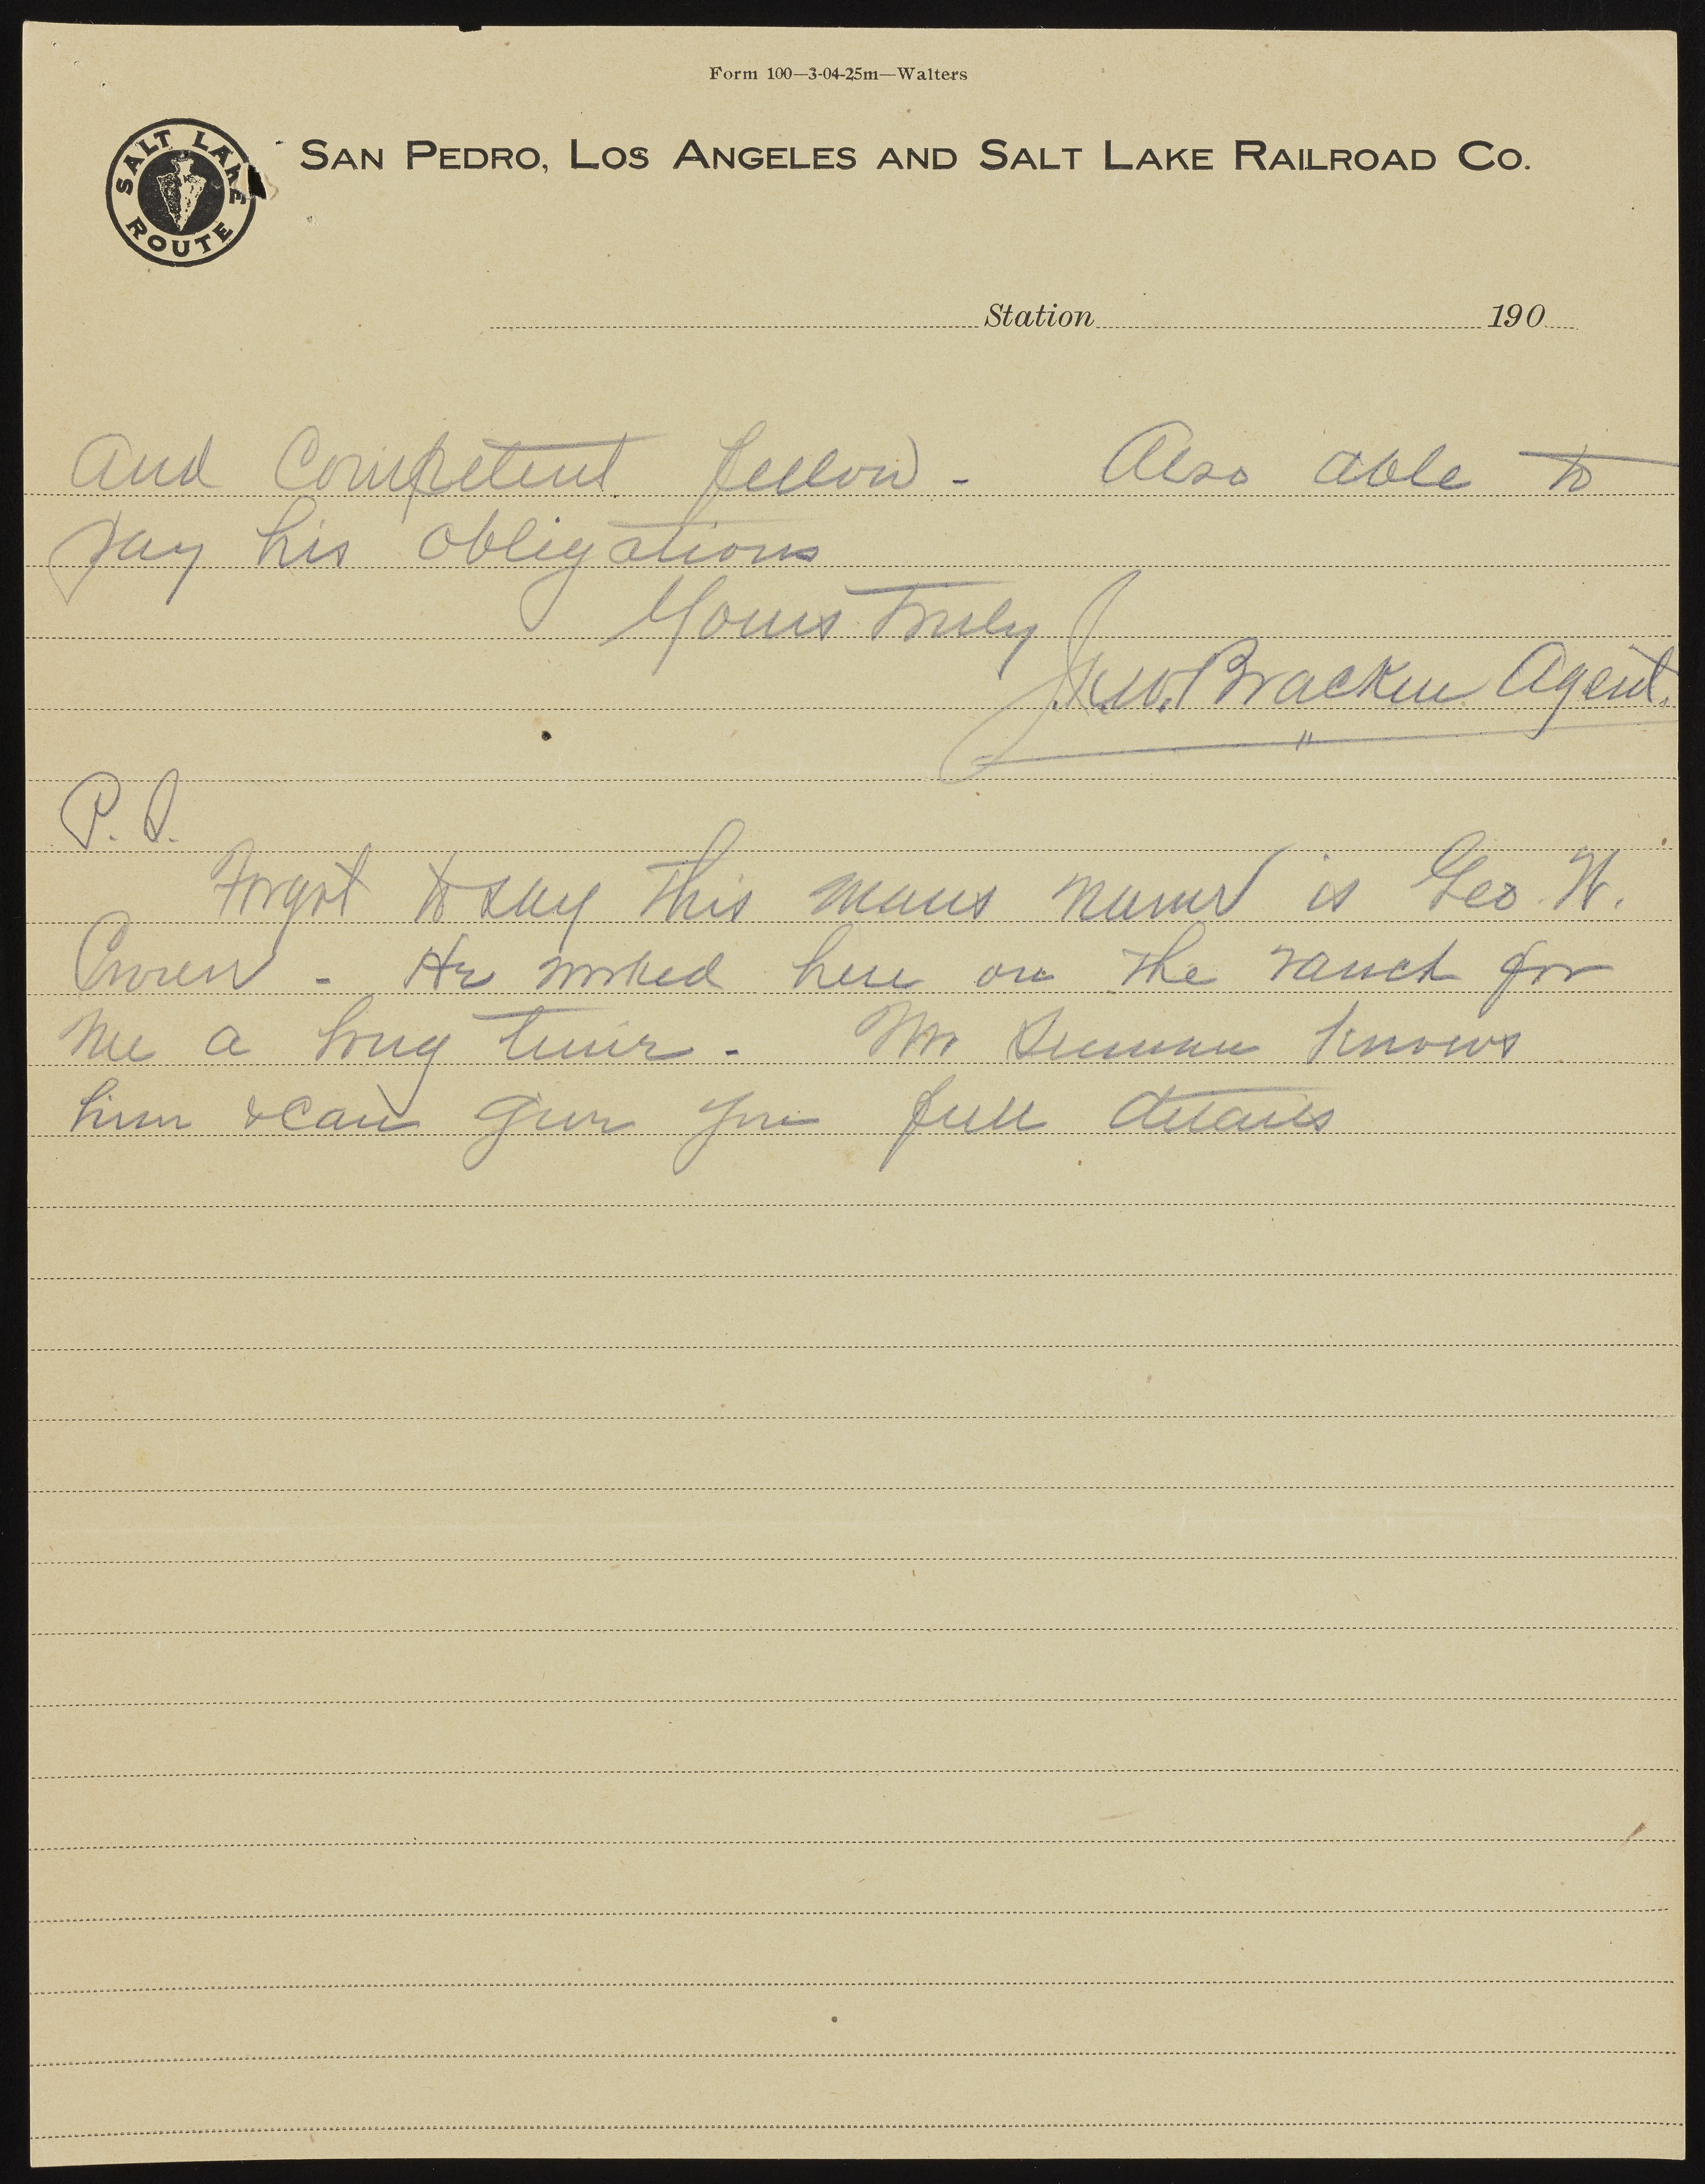 Form 100—3-04-25m—Walters
SALT LAKE ROUTE
SAN PEDRO, LOS ANGELES AND SALT LAKE RAILROAD CO.
Station 190
And Competent fellow - Also able to
pay his obligations
Yours Truly
Bracken Agent.
P. S.
Forgot to say this mans name is Geo. W.
- He worked here on the ranch for
me a long time - Mr knows
him & can give you full details